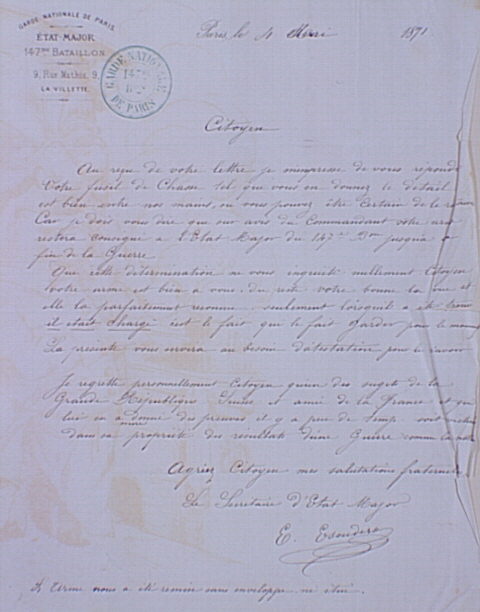 GARDE NATIONALE DE PARIS
ÉTAT-MAJOR
147ME BATAILLON
9, Rue Mathis, 9
LA VILLETTE
GARDE NATIONALE
147
DE PARIS
Paris, le 4 1871
Citoyen
Au reçu de votre lettre je m'empresse de vous répondre
Votre fusil de Chasse tel que vous en donnez le détail
est bien entre nos mains, où vous pouvez être Certain de le
Car je dois vous dire que sur avis du Commandant votre arme
restera consigné à l'Etat Major du 147 Bon jusqu'à la
fin de la Guerre
Que cette détermination ne vous inquiete nullement Citoyen
votre arme est bien à vous. du reste votre bonne l'a vue et
elle l'a parfaitement reconnue seulement lorsqu'il a été trouvé
il était chargé c'est le fait que le fait garder pour le moment
La présente vous servira au besoin d'attestation pour le ravoir
Je regrette personnellement Citoyen qu'un des sujets de la
Grande République et ami de la France et qui
lui en a donné des preuves il y a peu de temps soit
dans sa propriété des résultats d'une Guerre comme la
même
Agréez Citoyen mes salutations fraternelles
Le Secrétaire d'Etat Major
E. Escudero
L'Arme nous a été remise sans enveloppe ni étui.